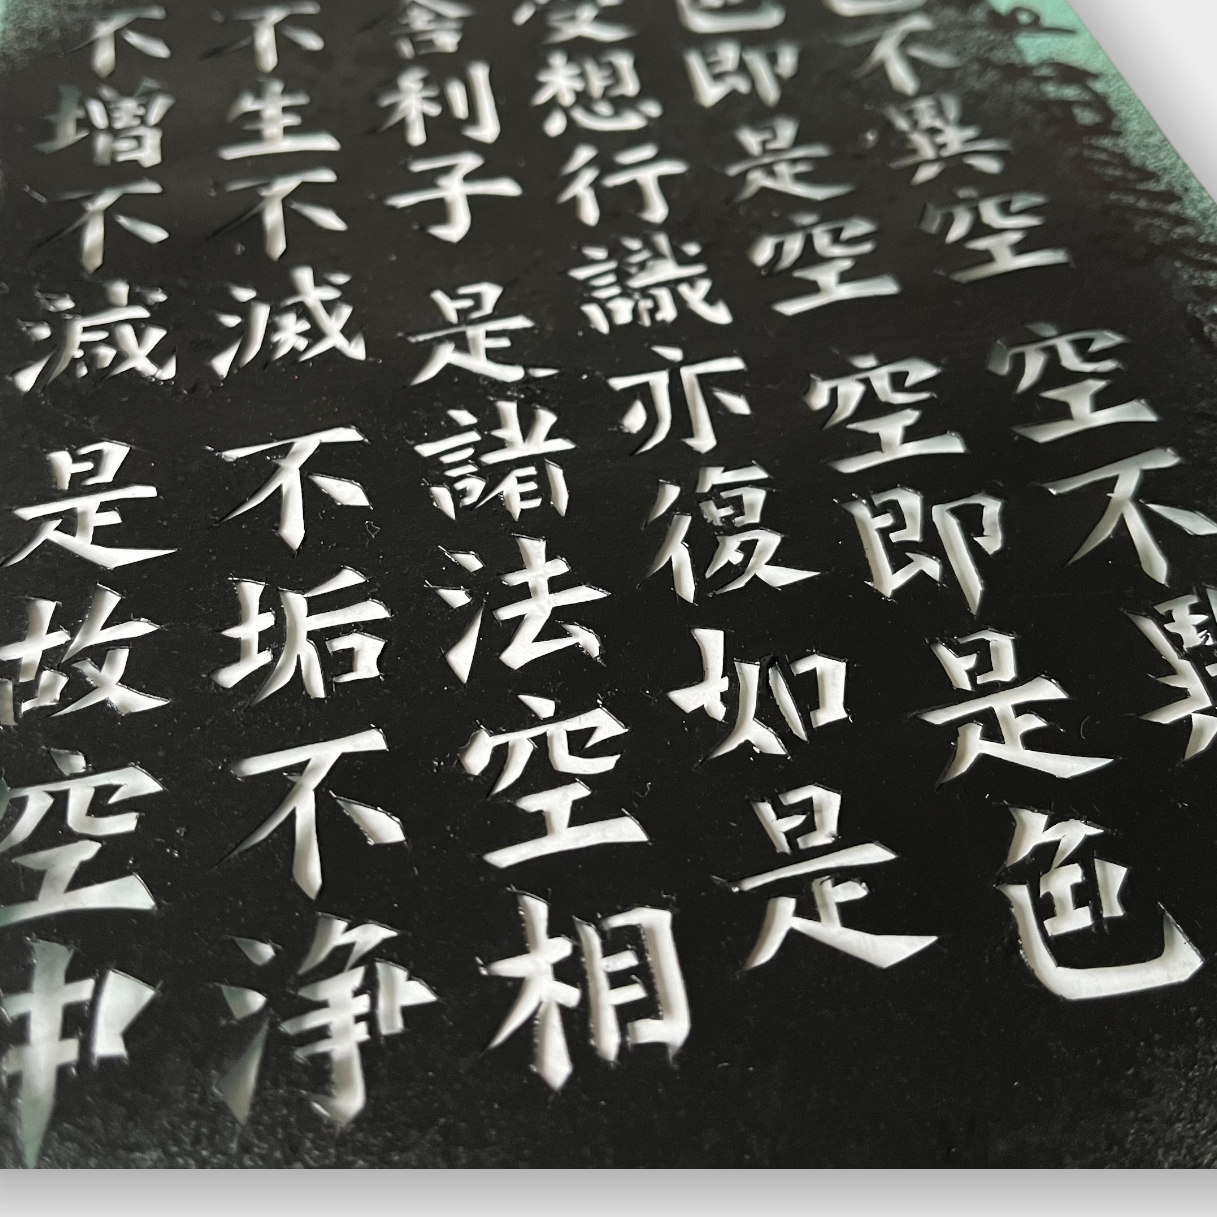 不異空空不異
色即是空空即是色
受想行識亦復如是
舍利子是諸法空相
不生不滅不垢不浄
不増不減是故空中